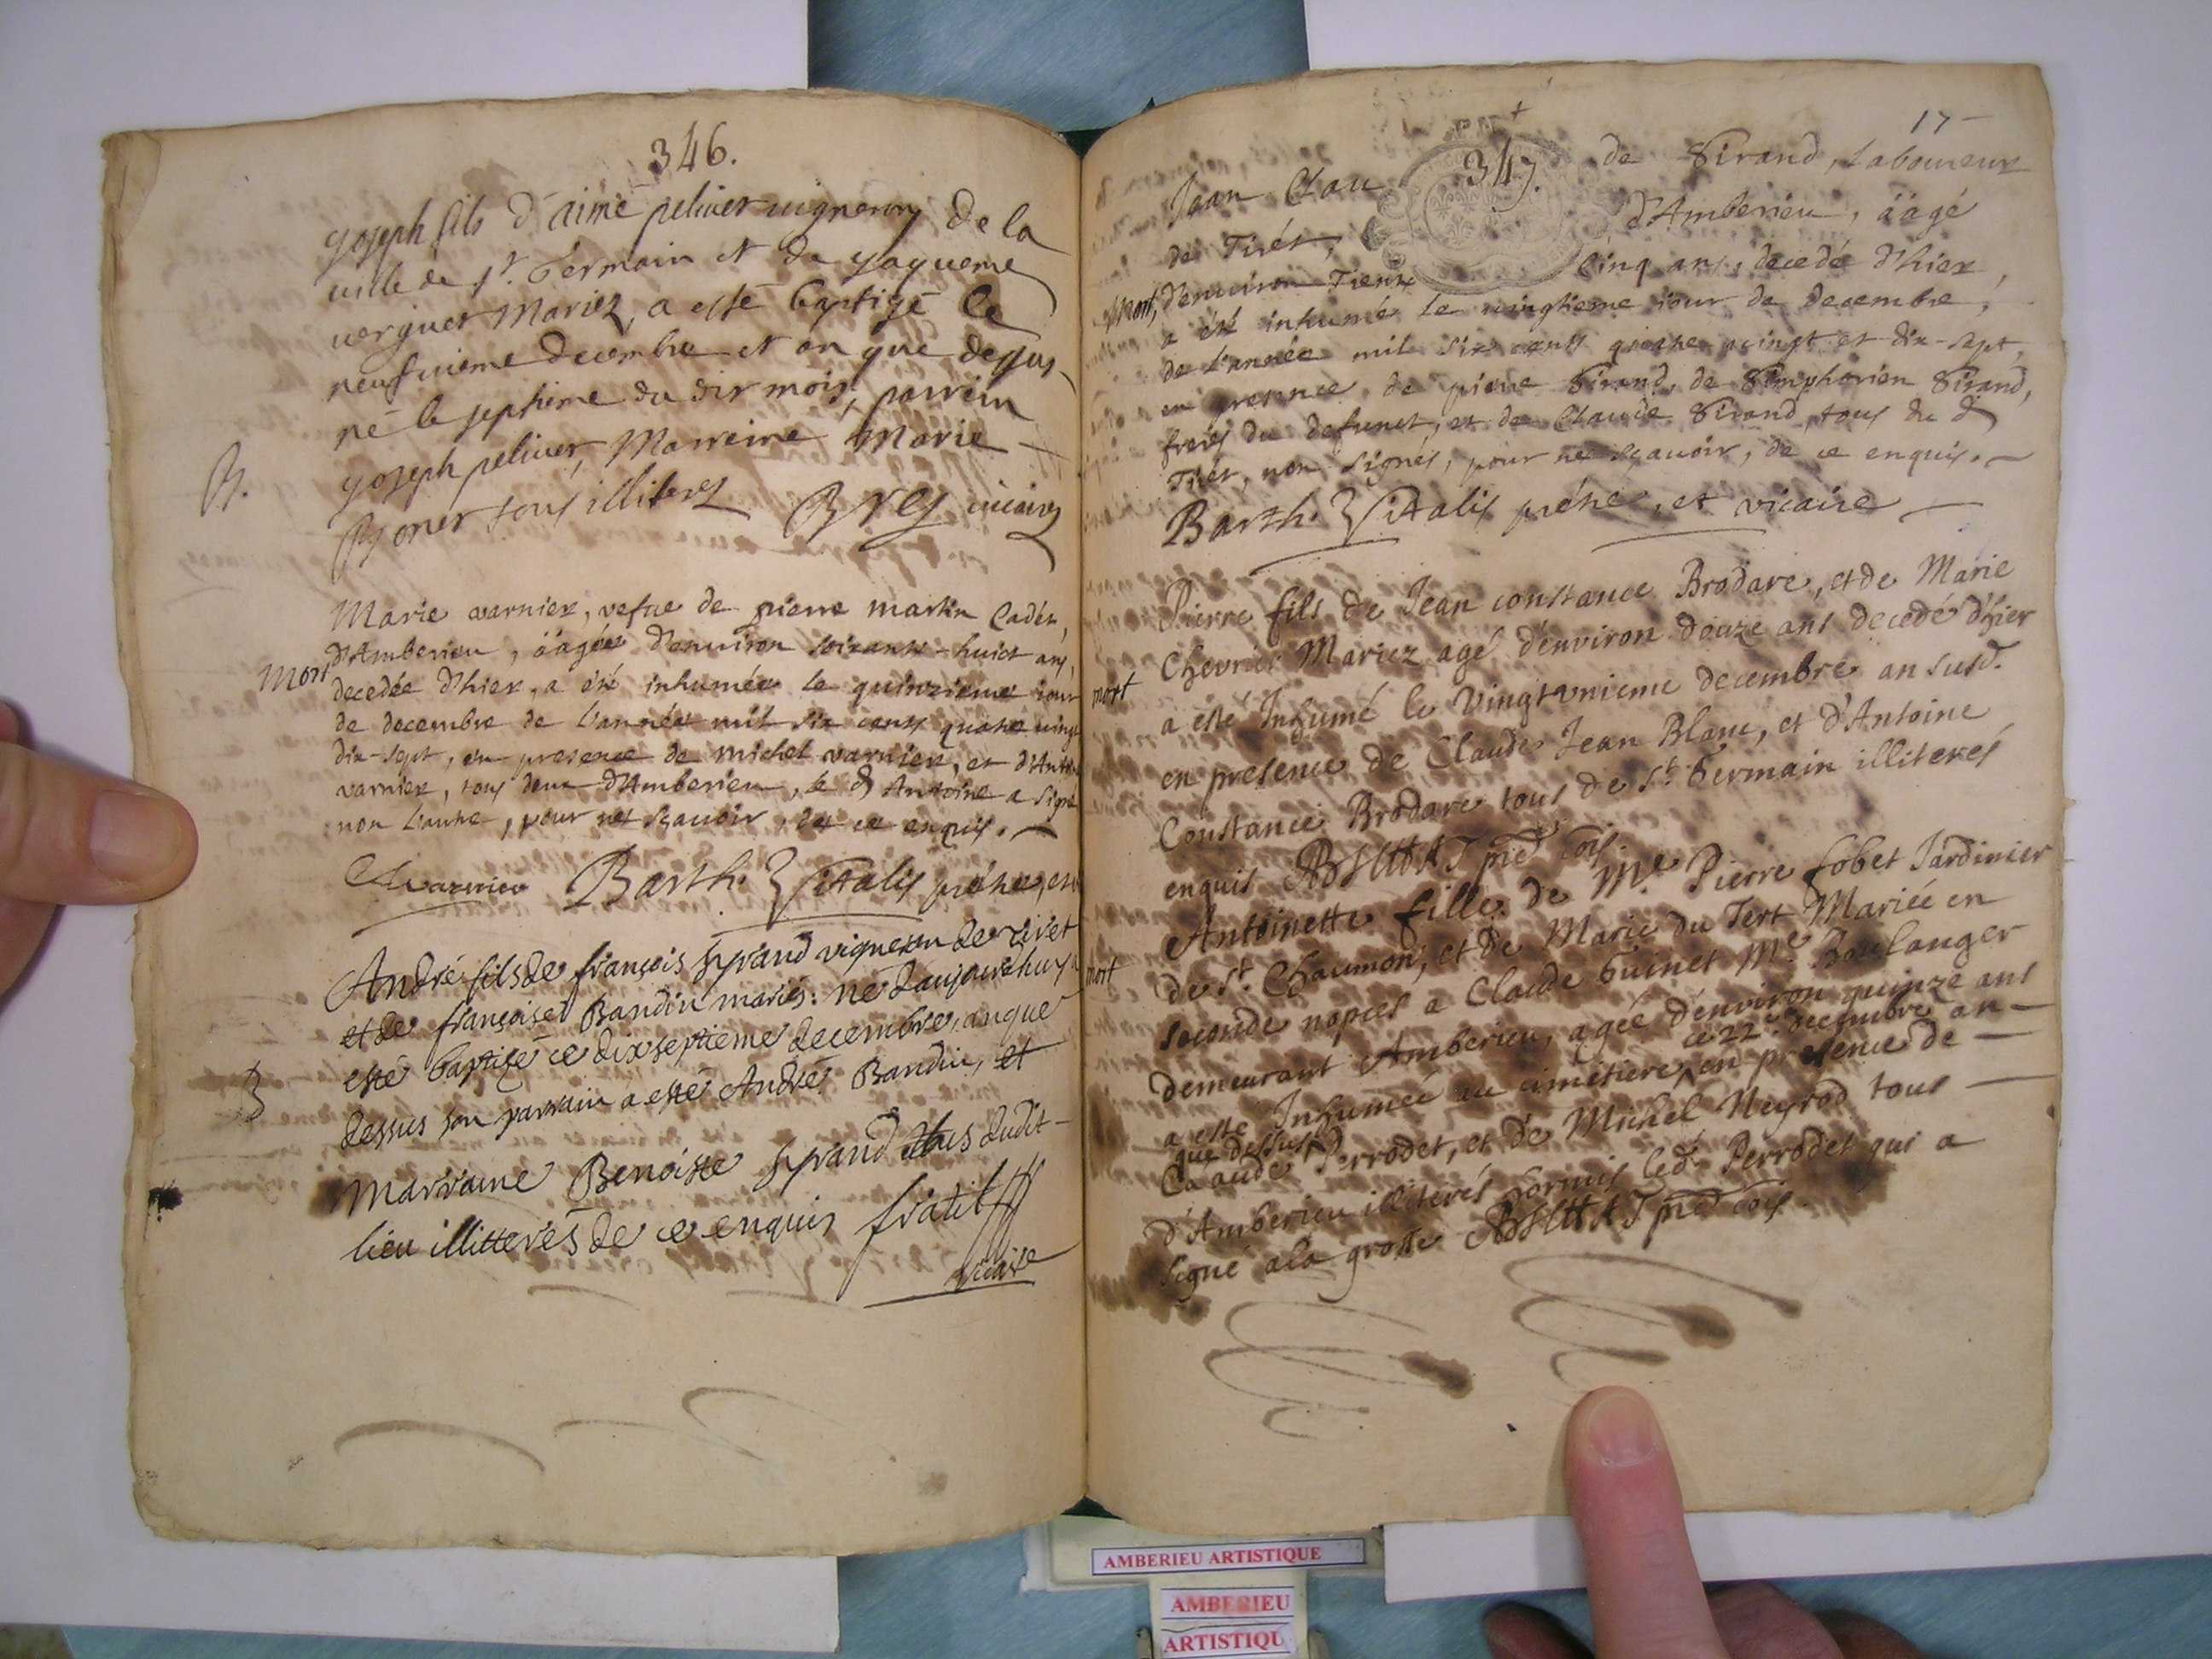 346.
Joseph fils d'aimé peliuet uigneron de la
uille de st. Germain et de Jaqueme
uerguet Mariez, a esté baptizé le
neufuieme decembre et an que dessus
né le septieme du dit mois, parrein
B.
Joseph peliuet, Marreine Marie
Bonet tous illiterez Brey uicaire
Mort
Marie warnier, vefue de pierre martin Cadet,
d'Amberieu, äagée d'enuiron soixante-huict ans,
decedée d'hier, a été inhumée le quinzieme iour
de decembre de l'année mil six cents quatre uingt
dix-sept, en presence de michel warnier, et d'Antoine
varnier, tous deux d'Amberieu, le d Antoine a signé
non l'autre, pour ne sçauoir, de ce enquis.
A warnier Barth. Vitalis prétre, et
B
André fils de françois syrand vigneron de tiret
et de françoise Bandin mariés: né d'aujourdhuy
esté baptizé ce dixseptieme decembre, an que
dessus son parrain a esté André Bandin, et
marraine Benoiste syrand tous dudit
lieu illitterés de ce enquis fratil
vicaire
17
347.
Jean Clau de Sirand, Laboureur
de Tirét, d'Amberieu, äagé
Mort, d'enuiron Trente Cinq ans, decedé d'hier,
a été inhumé le uingtieme iour de decembre,
de l'année mil six cents quatre uingt et dix-sept,
en presence de pierre Sirand, de Simphorien Sirand,
freres du defunct, et de Claude Sirand, tous du d
Tirét, non signés, pour ne sçauoir, de ce enquis.
Barth. Vitalis prétre, et vicaire
mort
Pierre fils de Jean constance Brodare, et de Marie
Chevrier Mariez agé d'environ douze ans decedé d'hier
a esté Inhumé le vingtunieme decembre an susd.
en presence de Claude Jean Blanc, et d'Antoine
Constance Brodare tous de St. Germain illiterés
enquis
mort
Antoinette fille de Me. Pierre fobet Jardinier
de St. Chaumon, et de Marie du Tert Mariée en
seconde nopces a Claude Guinet Me. Boulanger
demeurant Amberieu, agée d'environ quinze ans
a esté Inhumée au cimetiere, ce 22e. decembre an
que dessus en presence de
Claude Perrodet, et de Michel Neyrod tous
d'Amberieu illiterés hormis led. Perrodet qui a
signé a la grosse
AMBERIEU ARTISTIQUE
AMBERIEU
ARTISTIQU